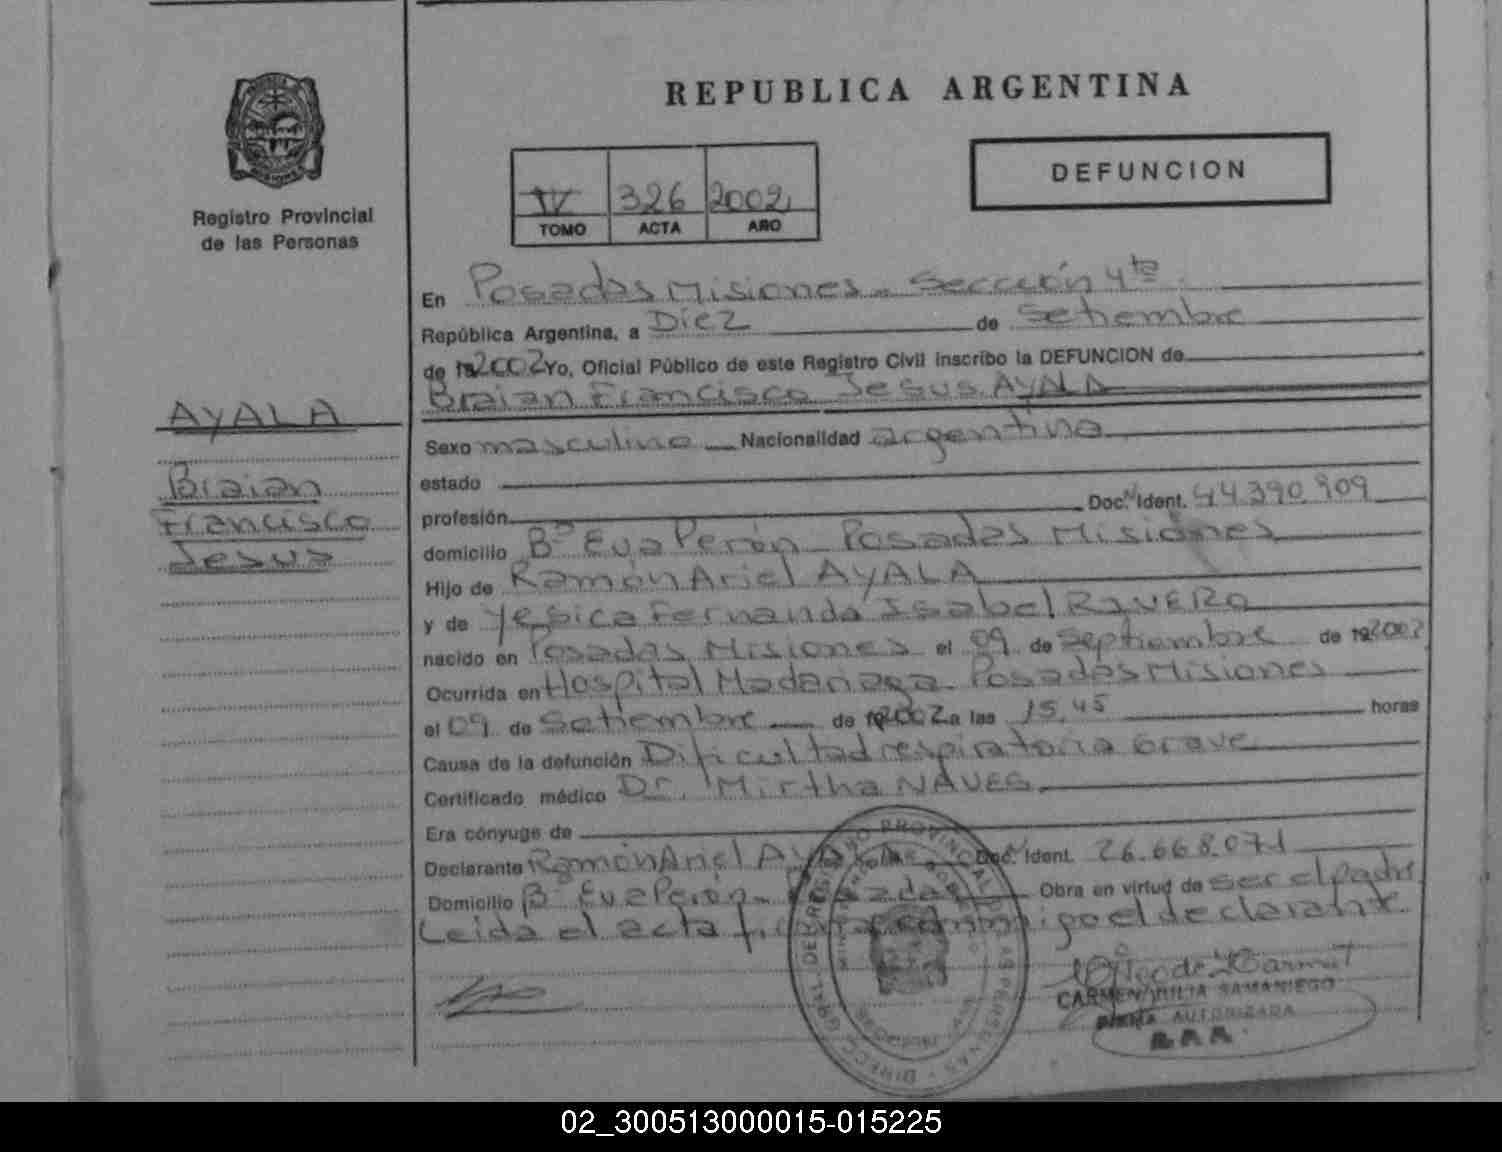 REPUBLICA ARGENTINA
DEFUNCION
Registro Provincial
de las Personas
IV 326 2002
TOMO ACTA AÑO
AYALA
Braian
Francisco
Jesus
En Posadas Misiones - Sección 4ta
República Argentina, a Diez de Setiembre
de 192002 Yo, Oficial Público de este Registro Civil inscribo la DEFUNCION de
Braian Francisco Jesus AYALA
Sexo masculino Nacionalidad argentina
estado
profesión Doc. Nº Ident. 44.390.909
domicilio Bº Eva Perón - Posadas Misiones
Hijo de Ramón Ariel AYALA
y de Yesica Fernanda Isabel RIVERO
nacido en Posadas Misiones el 09 de Septiembre de 192002
Ocurrida en Hospital Madariaga Posadas Misiones
el 09 de Setiembre de 192002 a las 15,45 horas
Causa de la defunción Dificultad respiratoria Grave
Certificado médico Dr. Mirtha NAVES
Era cónyuge de
Declarante Ramón Ariel AYALA Doc. Ident. 26.668.071
Domicilio Bº Eva Perón - Posadas Obra en virtud de ser el padre
Leida el acta firma conmigo el declarante
CARMEN JULIA SAMANIEGO
FIRMA AUTORIZADA
02_300513000015-015225